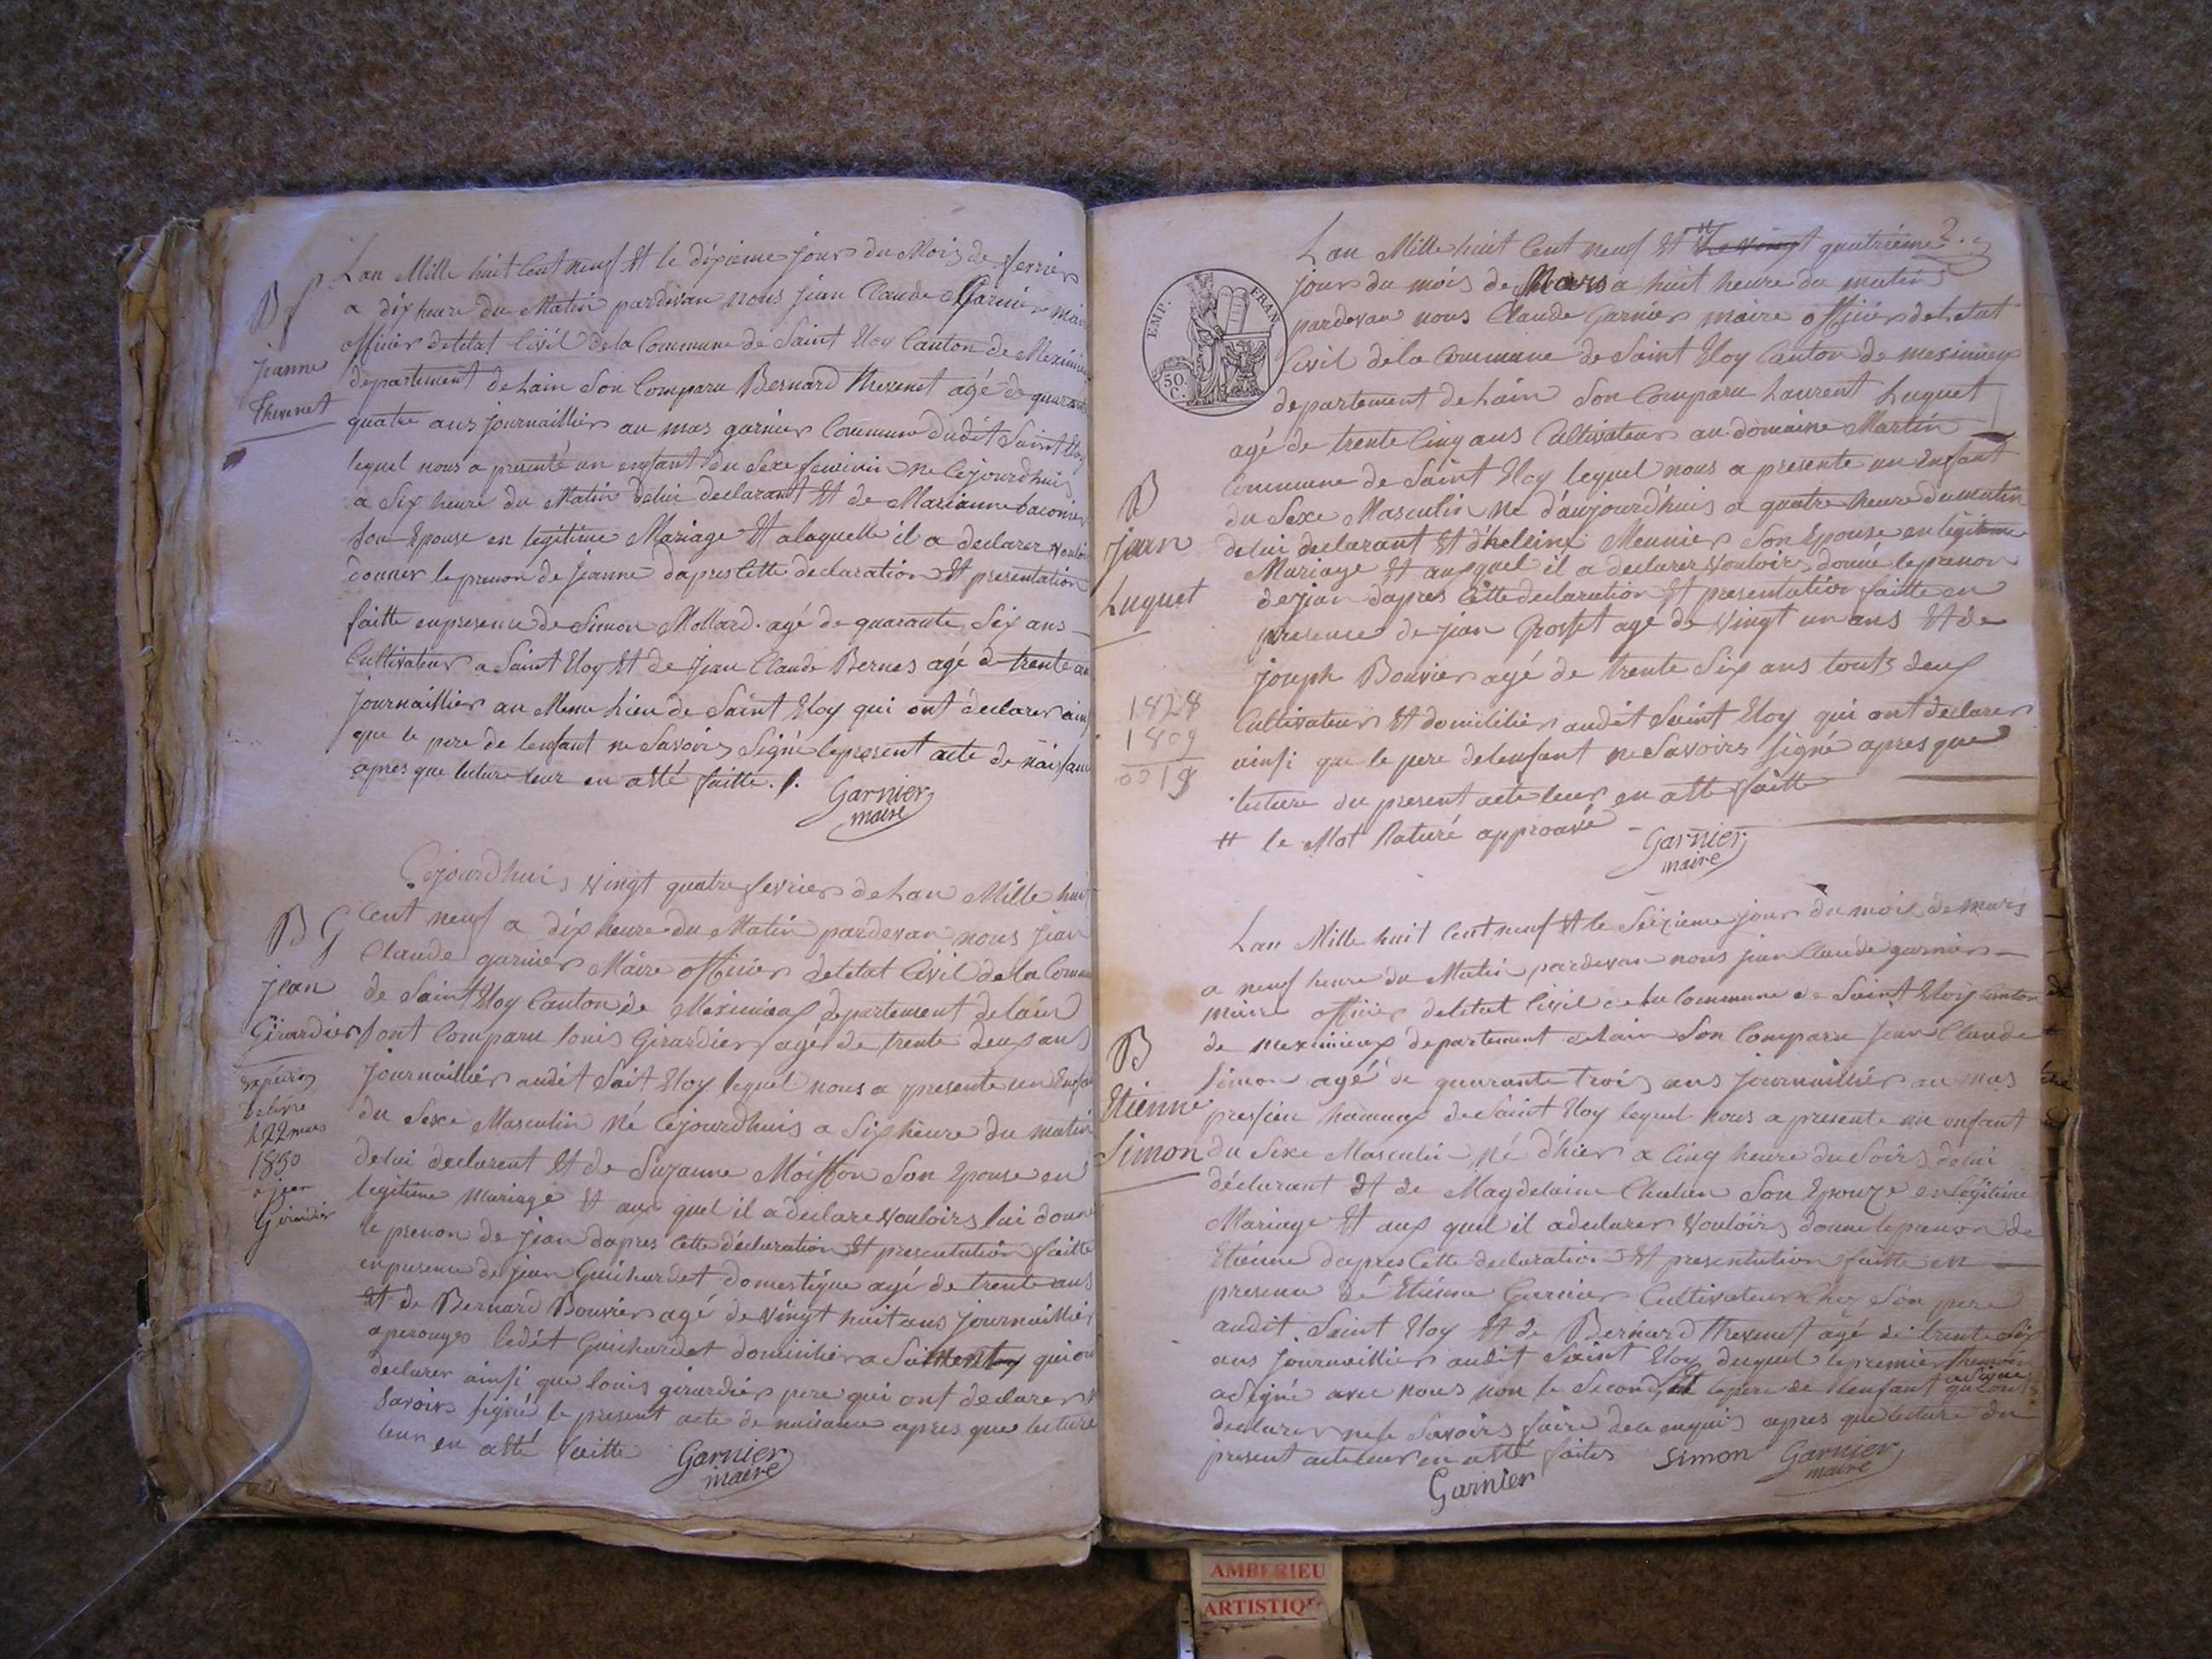 Lan Mille huit Cent neuf Et le dixieme jour du Mois de fevrier
a dix heure du Matin pardevan nous jean Claude Garnier maire
officier detetat Civil dela Commune de Saint Eloy Canton de Meximieux
departement de Lain Son Comparu Bernard thevenet agé de quarante
quatre ans journaillier au mas garnier Commune dudit Saint Eloy
lequel nous a presenté un enfant du Sexe feminin ne Cejourdhuis
a Six heure du Matin delui declarant Et de Marianne
Son Epouse en legitime Mariage Et a laquelle il a declarer vouloir
donner le prenon de Jeanne dapres Cette declaration Et presentation
faitte enpresence de Simon Mollard agé de quarante Six ans
Cultivateur a Saint Eloy Et de Jean Claude Bernes agé de trente ans
journaillier au Meme Lieu de Saint Eloy qui ont declarer ainsi
que le pere de lenfant ne Savoirs Signé le present acte de naisance
apres que lecture leur en atté faitte.
Garnier
maire
B f
jeanne
thevenet
Cejourdhuis vingt quatre fevrier de Lan Mille huit
Cent neuf a dix heure du Matin pardevan nous jean
Claude garnier Maire officier detetat Civil de la Commune
de Saint Eloy Canton de Meximieux departement de lain
Sont Comparu louis Girardier agé de trente deux ans
journaillier audit Sait Eloy lequel nous a presente un Enfant
du Sexe Masculin Né Cejourdhuis a Six heure du matin
delui declarent Et de Suzanne Moisson Son Epouse en
legitime Mariage Et aux quel il a declare vouloirs lui donné
le prenon de jean dapres Cette declaration Et presentation faitte
enpresence de jean Guichardet domestique agé de trente ans
Et de Bernard Bouvier agé de vingt huit ans journaillier
a perouges ledit Guichardet domicilier a qui ont
declarer ainsi que louis girardier pere qui ont declarer
Savoirs signé le present acte de naisance apres que lecture
leur en atté faitte
Garnier
maire
B G
jean
Girardier
expédion
delivré
le 22 mars
1830
a jean
Girardier
Lan Mille huit Cent neuf Et # Le vingt quatrieme
jour du mois de Mars a huit heure du matin
pardevan nous Claude Garnier maire officier detetat
Civil dela Commune de Saint Eloy Canton de meximieux
departement de Lain Son Comparu Laurent Luquet
agé de trente Cinq ans Cultivateur au domaine Martin
Commune de Saint Eloy lequel nous a presente un Enfant
du Sexe Masculin Né d'aujourd'huis a quatre heure dumatin
delui declarant Et d'helleine Meunier Son Epouse en legitime
Mariage Et auxquel il a declarer vouloirs donné le prenon
de jean dapres Cette declaration Et presentation faitte en
presence de jean Grosset age de vingt un ans Et de
joseph Bouvier agé de trente Six ans touts deux
Cultivateur Et domicilier audit Saint Eloy qui ont declarer
ainsi que le pere delenfant ne Savoirs signé apres que
lecture du present acte leur en atté faitte
# le Mot Raturé approuvé
Garnier
maire
EMP. FRAN.
50.
C.
B
jean
Luquet
1828
1809
0019
Lan Mille huit Cent neuf Et le Seizieme jour du mois de mars
a neuf heure du Matin pardevan nous jean Claude garnier
maire officier detetat Civil de la Commune de Saint Eloy Canton
de meximieux departement de Lain Son Comparu Jean Claude
Simon agé de quarante trois ans journaillier au mas
hameaux de Saint Eloy lequel nous a presente un enfant
du Sexe Masculin Né d'hier a Cinq heure du Soirs delui
déclarant Et de Magdelaine Son Epouze en légitime
Mariage Et aux quel il a declarer vouloirs donne le prenon de
Etiénne dapres Cette declaration Et presentation faitte en
presence de Etiénne Garnier Cultivateur chez Son pere
audit Saint Eloy Et de Bernard thevenet agé de trente Six
ans journaillier audit Saint Eloy duquel le premier themoin
a Signé avec nous non le Second Et le pere de lenfant qui ont
declarer Savoirs faire apres que lecture du
present acte leur en atté faites
Simon
Garnier
maire
Garnier
B
Etienne
Simon
AMBERIEU
ARTISTIQ